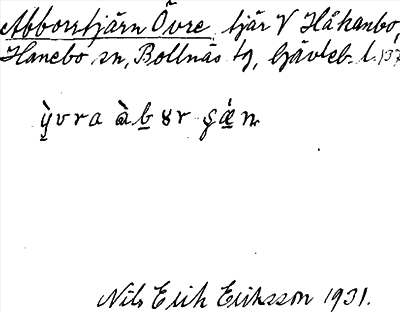 Abborrtjärn Övre, tjär V Håkanbo,
Hanebo sn, Bollnäs tg, Gävleb. l. 137
ỳ̠vra àb̠ɤr ʂǽ̠n
Nils Erik Eriksson 1931.